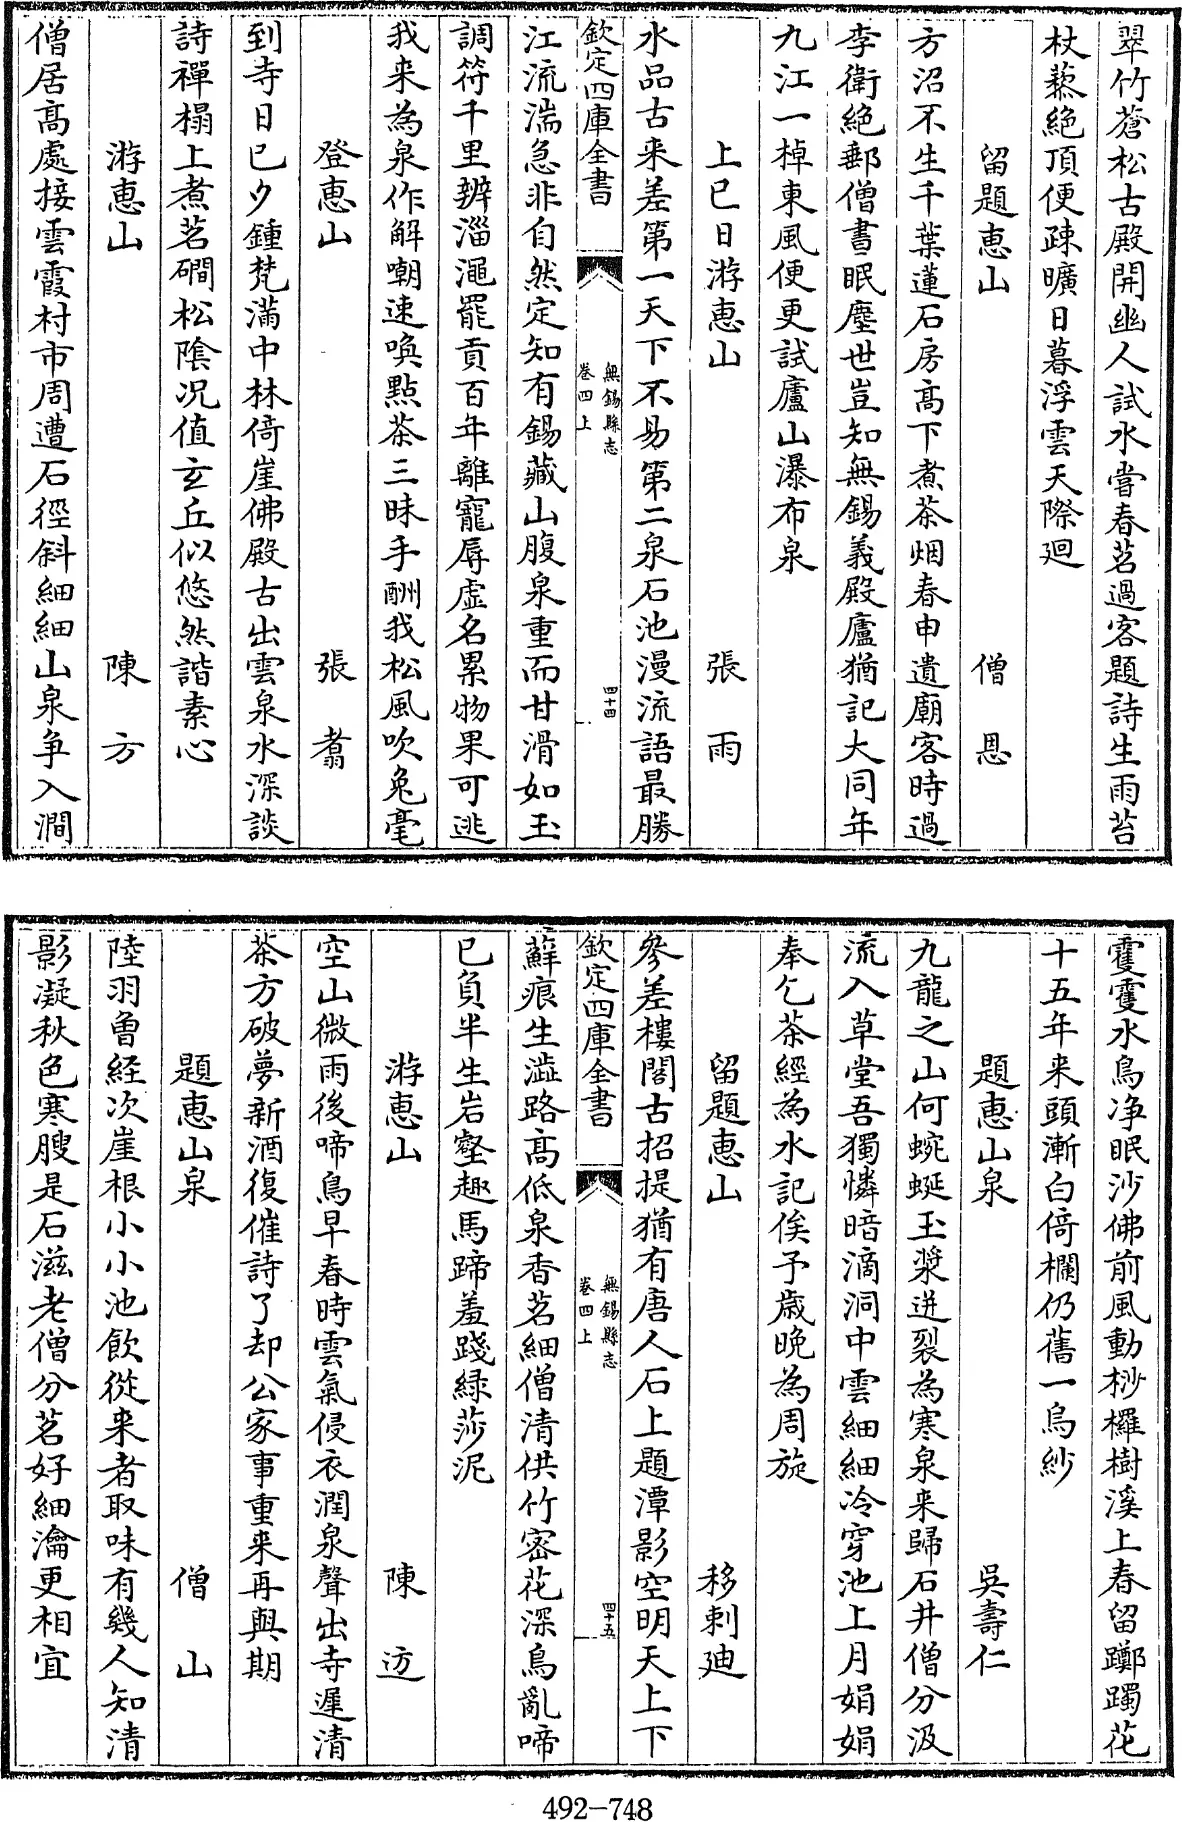 翠竹蒼松古殿開幽人試水嘗春茗過客題詩生雨苔
杖藜絶頂便疎曠日暮浮雲天際廻
留題惠山　僧恩
方沼不生千葉蓮石房髙下煮茶烟春申遺廟客時過
李衛絶郵僧晝眠塵世豈知無錫義殿廬猶記大同年
九江一棹東風便更試廬山瀑布泉
上巳日游惠山　張雨
水品古来差第一天下不易第二泉石池漫流語最勝
欽定四庫全書　無錫縣志卷四上　四十四
江流湍急非自然定知有錫藏山腹泉重而甘滑如玉
調符千里辨淄澠罷貢百年離寵辱虚名累物果可逃
我来為泉作解嘲速喚點茶三昧手酬我松風吹兔毫
登惠山　張翥
到寺日已夕鍾梵滿中林倚崖佛殿古出雲泉水深談
詩禪榻上煮茗磵松陰况值玄丘似悠然諧素心
游惠山　陳方
僧居髙處接雲霞村市周遭石徑斜細細山泉争入澗
䨥䨥水鳥净眠沙佛前風動桫欏樹溪上春留躑躅花
十五年来頭漸白倚欄仍舊一烏紗
題惠山泉　吳壽仁
九龍之山何蜿蜒玉漿迸裂為寒泉来歸石井僧分汲
流入草堂吾獨憐暗滴洞中雲細細冷穿池上月娟娟
奉乞茶經為水記俟予歳晚為周旋
留題惠山　移剌廸
參差樓閣古招提猶有唐人石上題潭影空明天上下
欽定四庫全書　無錫縣志卷四上　四十五
蘚痕生澁路髙低泉香茗細僧清供竹宻花深鳥亂啼
已負半生岩壑趣馬蹄羞踐緑莎泥
游惠山　陳迈
空山微雨後啼鳥早春時雲氣侵衣潤泉聲出寺遲清
茶方破夢新酒復催詩了却公家事重来再與期
題惠山泉　僧山
陸羽曽経次崖根小小池飲從来者取味有幾人知清
影凝秋色寒膄是石滋老僧分茗好細瀹更相宜
492-748